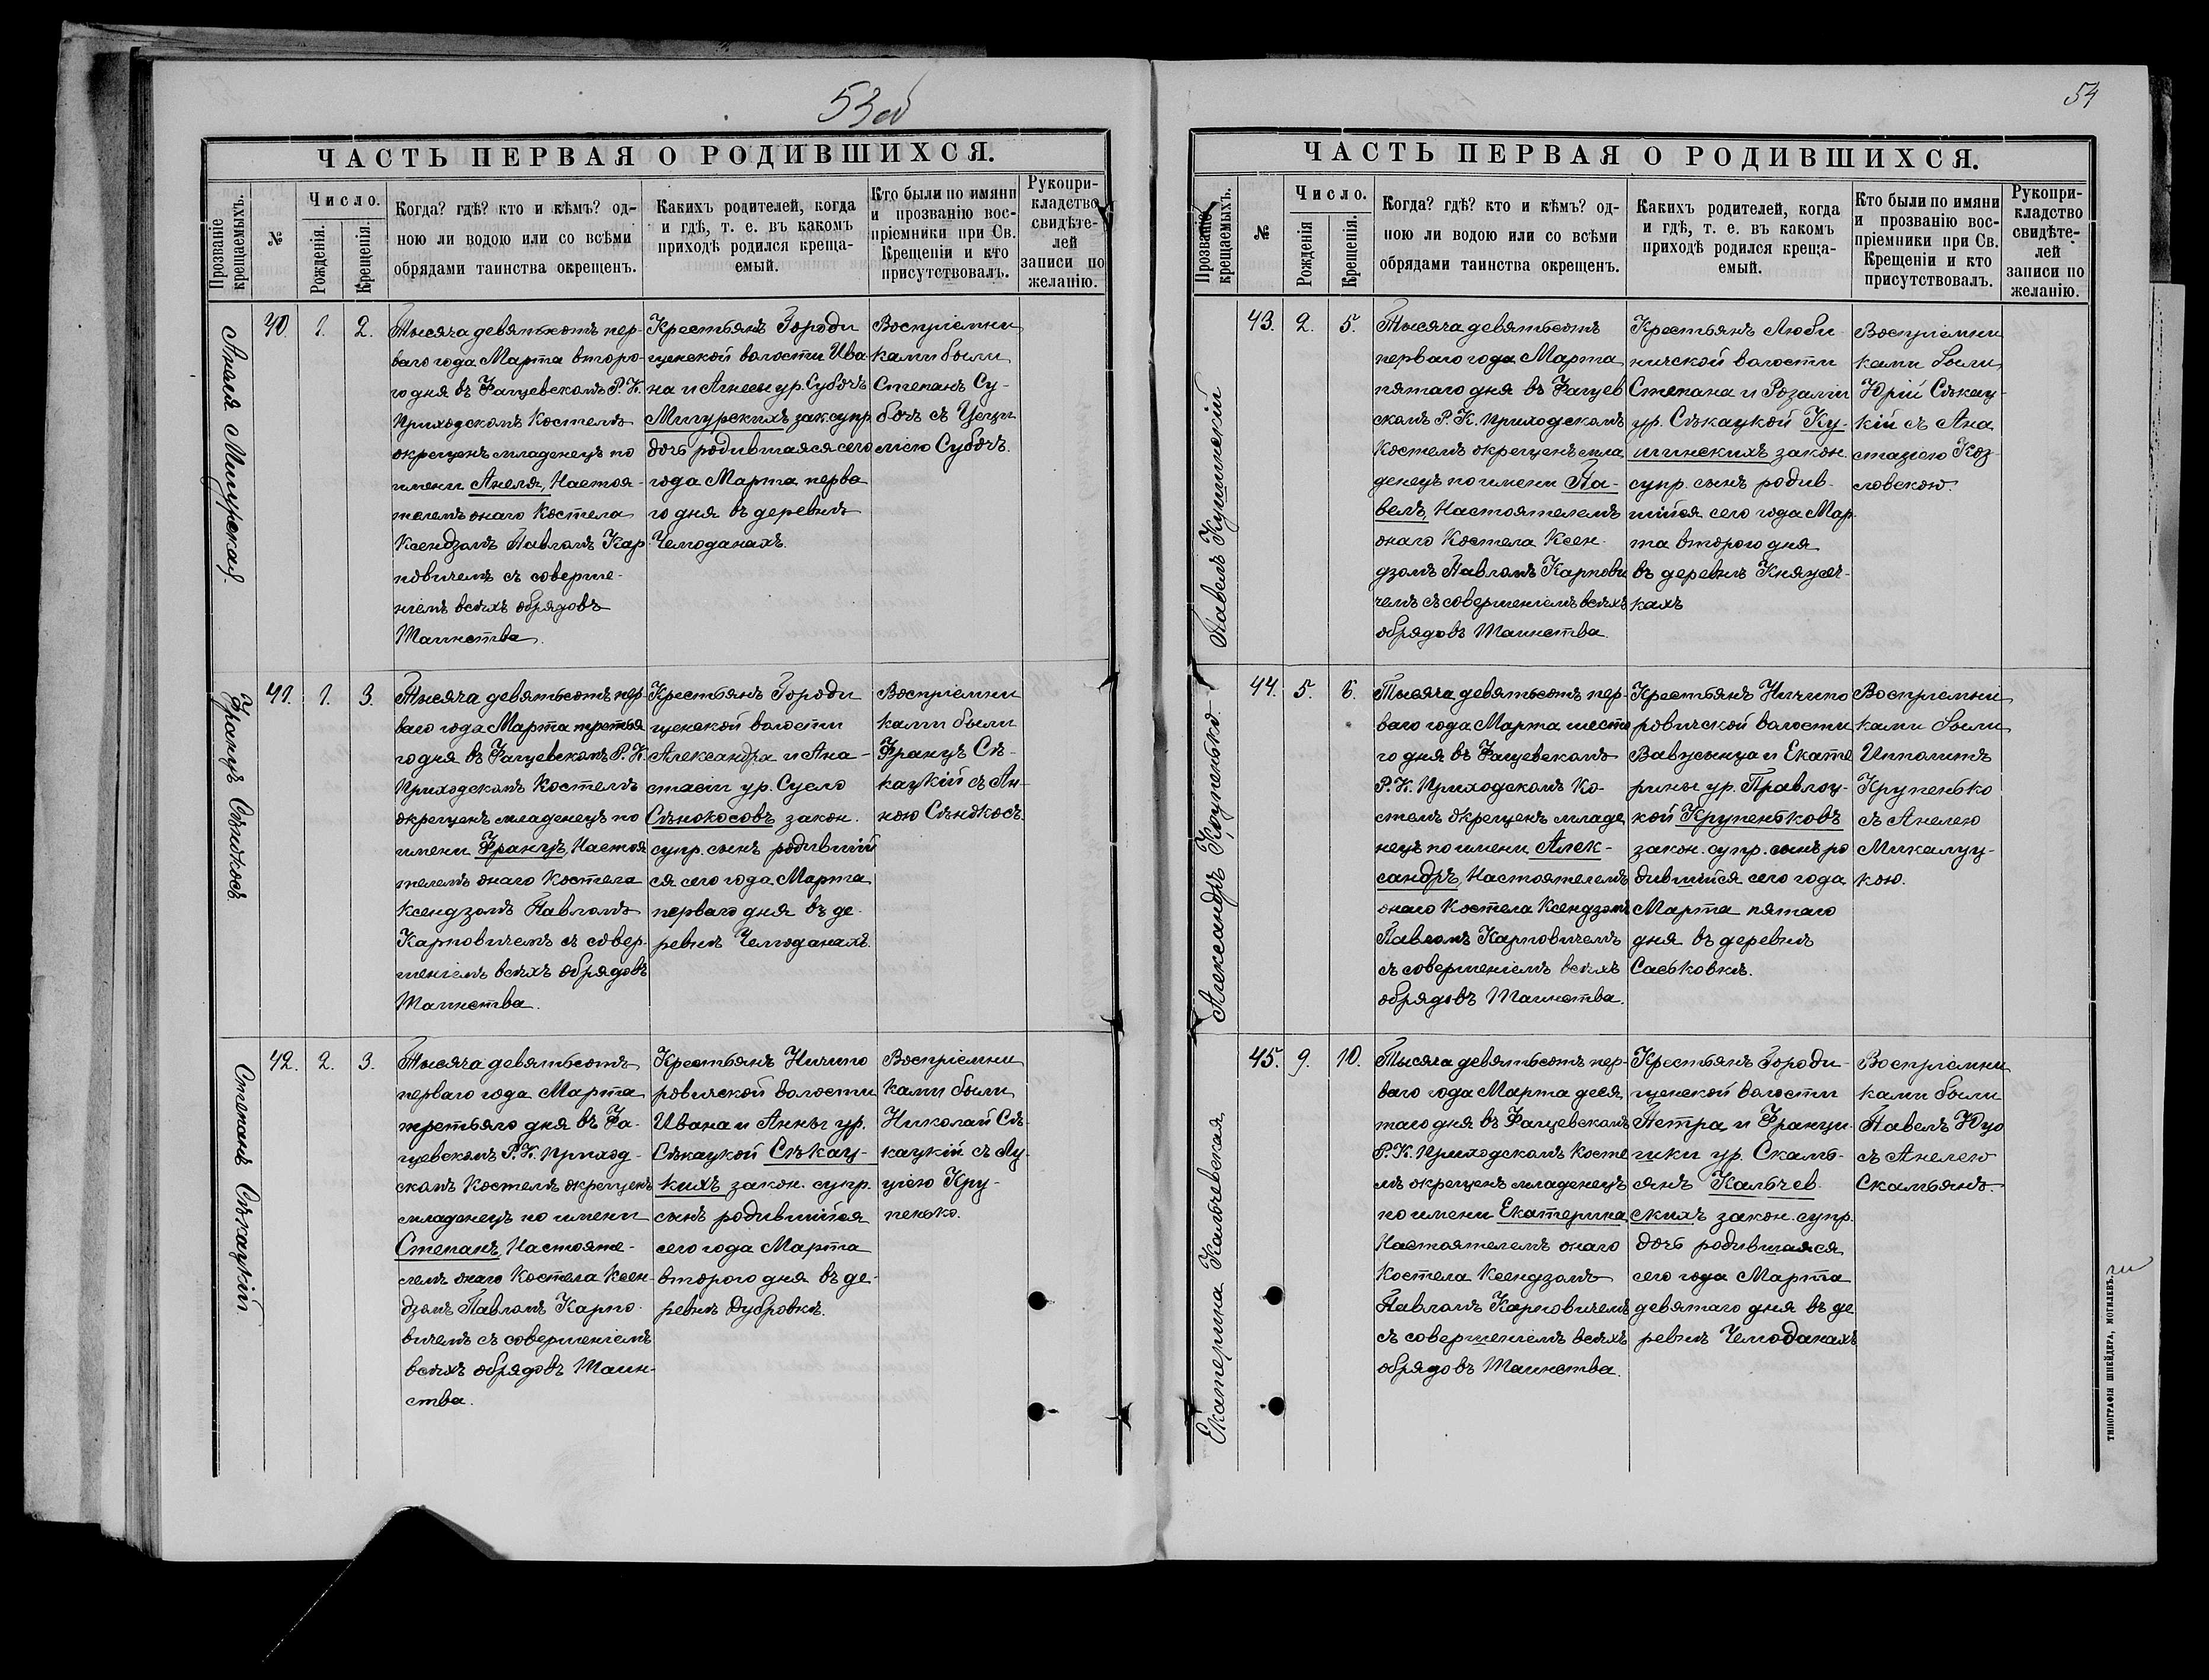 53 об
ЧАСТЬ ПЕРВАЯ О РОДИВШИХСЯ.
Прозваніе
крещаемыхъ.
№
Число.
Рожденія.
Крещенія.
Когда? гдѣ? кто и кѣмъ? од-
ною ли водою или со всѣми
обрядами таинства окрещенъ.
Какихъ родителей, когда
и гдѣ, т. е. въ какомъ
приходѣ родился креща-
емый.
Кто были по имяни
и прозванію вос-
пріемники при Св.
Крещеніи и кто
присутствовалъ.
Рукопри-
кладство
свидѣте-
лей
записи по
желанію.
Анеля Мигурская.
40.
1.
2.
Тысяча девятьсотъ пер-
ваго года Марта второ-
го дня въ Фащевскомъ Р. К.
Приходскомъ Костелѣ
окрещенъ младенецъ по
имени Анеля, Настоя-
телемъ онаго Костела
Ксендзомъ Павломъ Кар-
повичемъ съ соверше-
ніемъ всѣхъ обрядовъ
Таинства.
Крестьянъ Городи
щенской волости Ива
на и Агнесы ур. Субочъ
Мигурскихъ зак. супр.
дочь родившаяся сего
года Марта перва
го дня въ деревнѣ
Чемоданахъ.
Воспріемни
ками были
Степанъ Су-
бочъ съ Цеци
ліею Субочъ.
Францъ Сѣнокосъ.
41.
1.
3.
Тысяча девятьсотъ пер-
ваго года Марта третья
го дня въ Фащевскомъ Р. К.
Приходскомъ Костелѣ
окрещенъ младенецъ по
имени Францъ, Настоя
телемъ онаго Костела
Ксендзомъ Павломъ
Карповичемъ съ совер-
шеніемъ всѣхъ обрядовъ
Таинства.
Крестьянъ Городи
щенской волости
Александра и Ана-
стасіи ур. Сусло
Сѣнокосовъ закон.
супр. сынъ родившій
ся сего года Марта
перваго дня въ де-
ревнѣ Чемоданахъ.
Воспріемни
ками были
Францъ Сѣ-
кацкій съ Ан-
ною Сѣнокосъ.
Степанъ Сѣкацкій.
42.
2.
3.
Тысяча девятьсотъ
перваго года Марта
третьяго дня въ Фа-
щевскомъ Р. К. Приход-
скомъ Костелѣ окрещенъ
младенецъ по имени
Степанъ, Настояте-
лемъ онаго Костела Ксен-
дзомъ Павломъ Карпо-
вичемъ съ совершеніемъ
всѣхъ обрядовъ Таин-
ства.
Крестьянъ Ничипо
ровичской волости
Ивана и Анны ур.
Сѣкацкой Сѣкац-
кихъ закон. супр.
сынъ родившійся
сего года Марта
второго дня въ де-
ревнѣ Дубровкѣ.
Воспріемни
ками были
Николай Сѣ-
кацкій съ Лу-
ціею Кру-
пенько.
54
ЧАСТЬ ПЕРВАЯ О РОДИВШИХСЯ.
Прозваніе
крещаемыхъ.
№
Число.
Рожденія
Крещенія.
Когда? гдѣ? кто и кѣмъ? од-
ною ли водою или со всѣми
обрядами таинства окрещенъ.
Какихъ родителей, когда
и гдѣ, т. е. въ какомъ
приходѣ родился креща-
емый.
Кто были по имяни
и прозванію вос-
пріемники при Св.
Крещеніи и кто
присутствовалъ.
Рукопри-
кладство
свидѣте-
лей
записи по
желанію.
Павелъ Кушинскій
43.
2.
5.
Тысяча девятьсотъ
перваго года Марта
пятаго дня въ Фащев
скомъ Р. К. Приходскомъ
Костелѣ окрещенъ мла
денецъ по имени Па-
велъ, Настоятелемъ
онаго Костела Ксен-
дзомъ Павломъ Карпови
чемъ съ совершеніемъ всѣхъ
обрядовъ Таинства.
Крестьянъ Люби
ничской волости
Степана и Розаліи
ур. Сѣкацкой Ку-
шинскихъ закон.
супр. сынъ родив-
шійся сего года Мар-
та второго дня
въ деревнѣ Княжич-
кахъ
Воспріемни
ками были
Юрій Сѣкац-
кій съ Ана
стазіею Коз-
ловскою.
Александръ Крупенько.
44.
5.
6.
Тысяча девятьсотъ пер-
ваго года Марта шеста
го дня въ Фащевскомъ
Р. К. Приходскомъ Ко-
стелѣ окрещенъ младе
нецъ по имени Алек-
сандръ, Настоятелемъ
онаго Костела Ксендзомъ
Павломъ Карповичемъ
съ совершеніемъ всѣхъ
обрядовъ Таинства.
Крестьянъ Ничипо
ровичской волости
Вавжынца и Екате
рины ур. Правлоц-
кой Крупеньковъ
закон. супр. сынъ ро
дившійся сего года
Марта пятаго
дня въ деревнѣ
Саськовкѣ.
Воспріемни
ками были
Ипполитъ
Крупенько
съ Анелею
Микалуц-
кою.
Екатерина Кальчевская
45.
9.
10.
Тысяча девятьсотъ пер-
ваго года Марта деся
таго дня въ Фащевскомъ
Р. К. Приходскомъ Косте
лѣ окрещенъ младенецъ
по имени Екатерина
Настоятелемъ онаго
Костела Ксендзомъ
Павломъ Карповичемъ
съ совершеніемъ всѣхъ
обрядовъ Таинства.
Крестьянъ Городи-
щенской волости
Петра и Франци-
шки ур. Скамь-
янъ Кальчев
скихъ закон. супр.
дочь родившаяся
сего года Марта
девятаго дня въ де
ревнѣ Чемоданахъ
Воспріемни
ками были
Павелъ Юцо
съ Анелею
Скамьянъ.
ТИПОГРАФІЯ ШНЕЙДЕРА, МОГИЛЕВЪ.